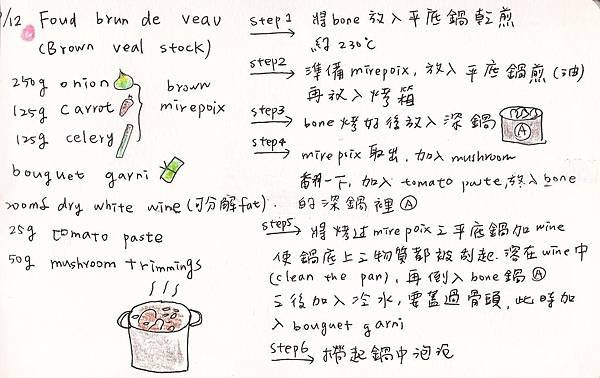 1/12 Foud brun de veau
(Brown veal stock)
250g onion
125g carrot
125g celery
brown
mirepoix
bouquet garni
200ml dry white wine (可分解fat).
25g tomato paste
50g mushroom trimmings
step1 將bone 放入平底鍋乾煎
約230℃
step2 準備mirepoix, 放入平底鍋煎(油)
再放入烤箱
step3 bone 烤好後放入深鍋 A
step4 mirepoix 取出, 加入 mushroom
翻一下, 加入 tomato paste, 放入bone
的深鍋裡 A
step5 將烤过mirepoix之平底鍋加wine
使鍋底上之物質都被刮起. 溶在wine中
(clean the pan), 再倒入bone鍋 A
之後加入冷水, 要蓋過骨頭, 此時加
入 bouquet garni
step6 撈起鍋中泡泡